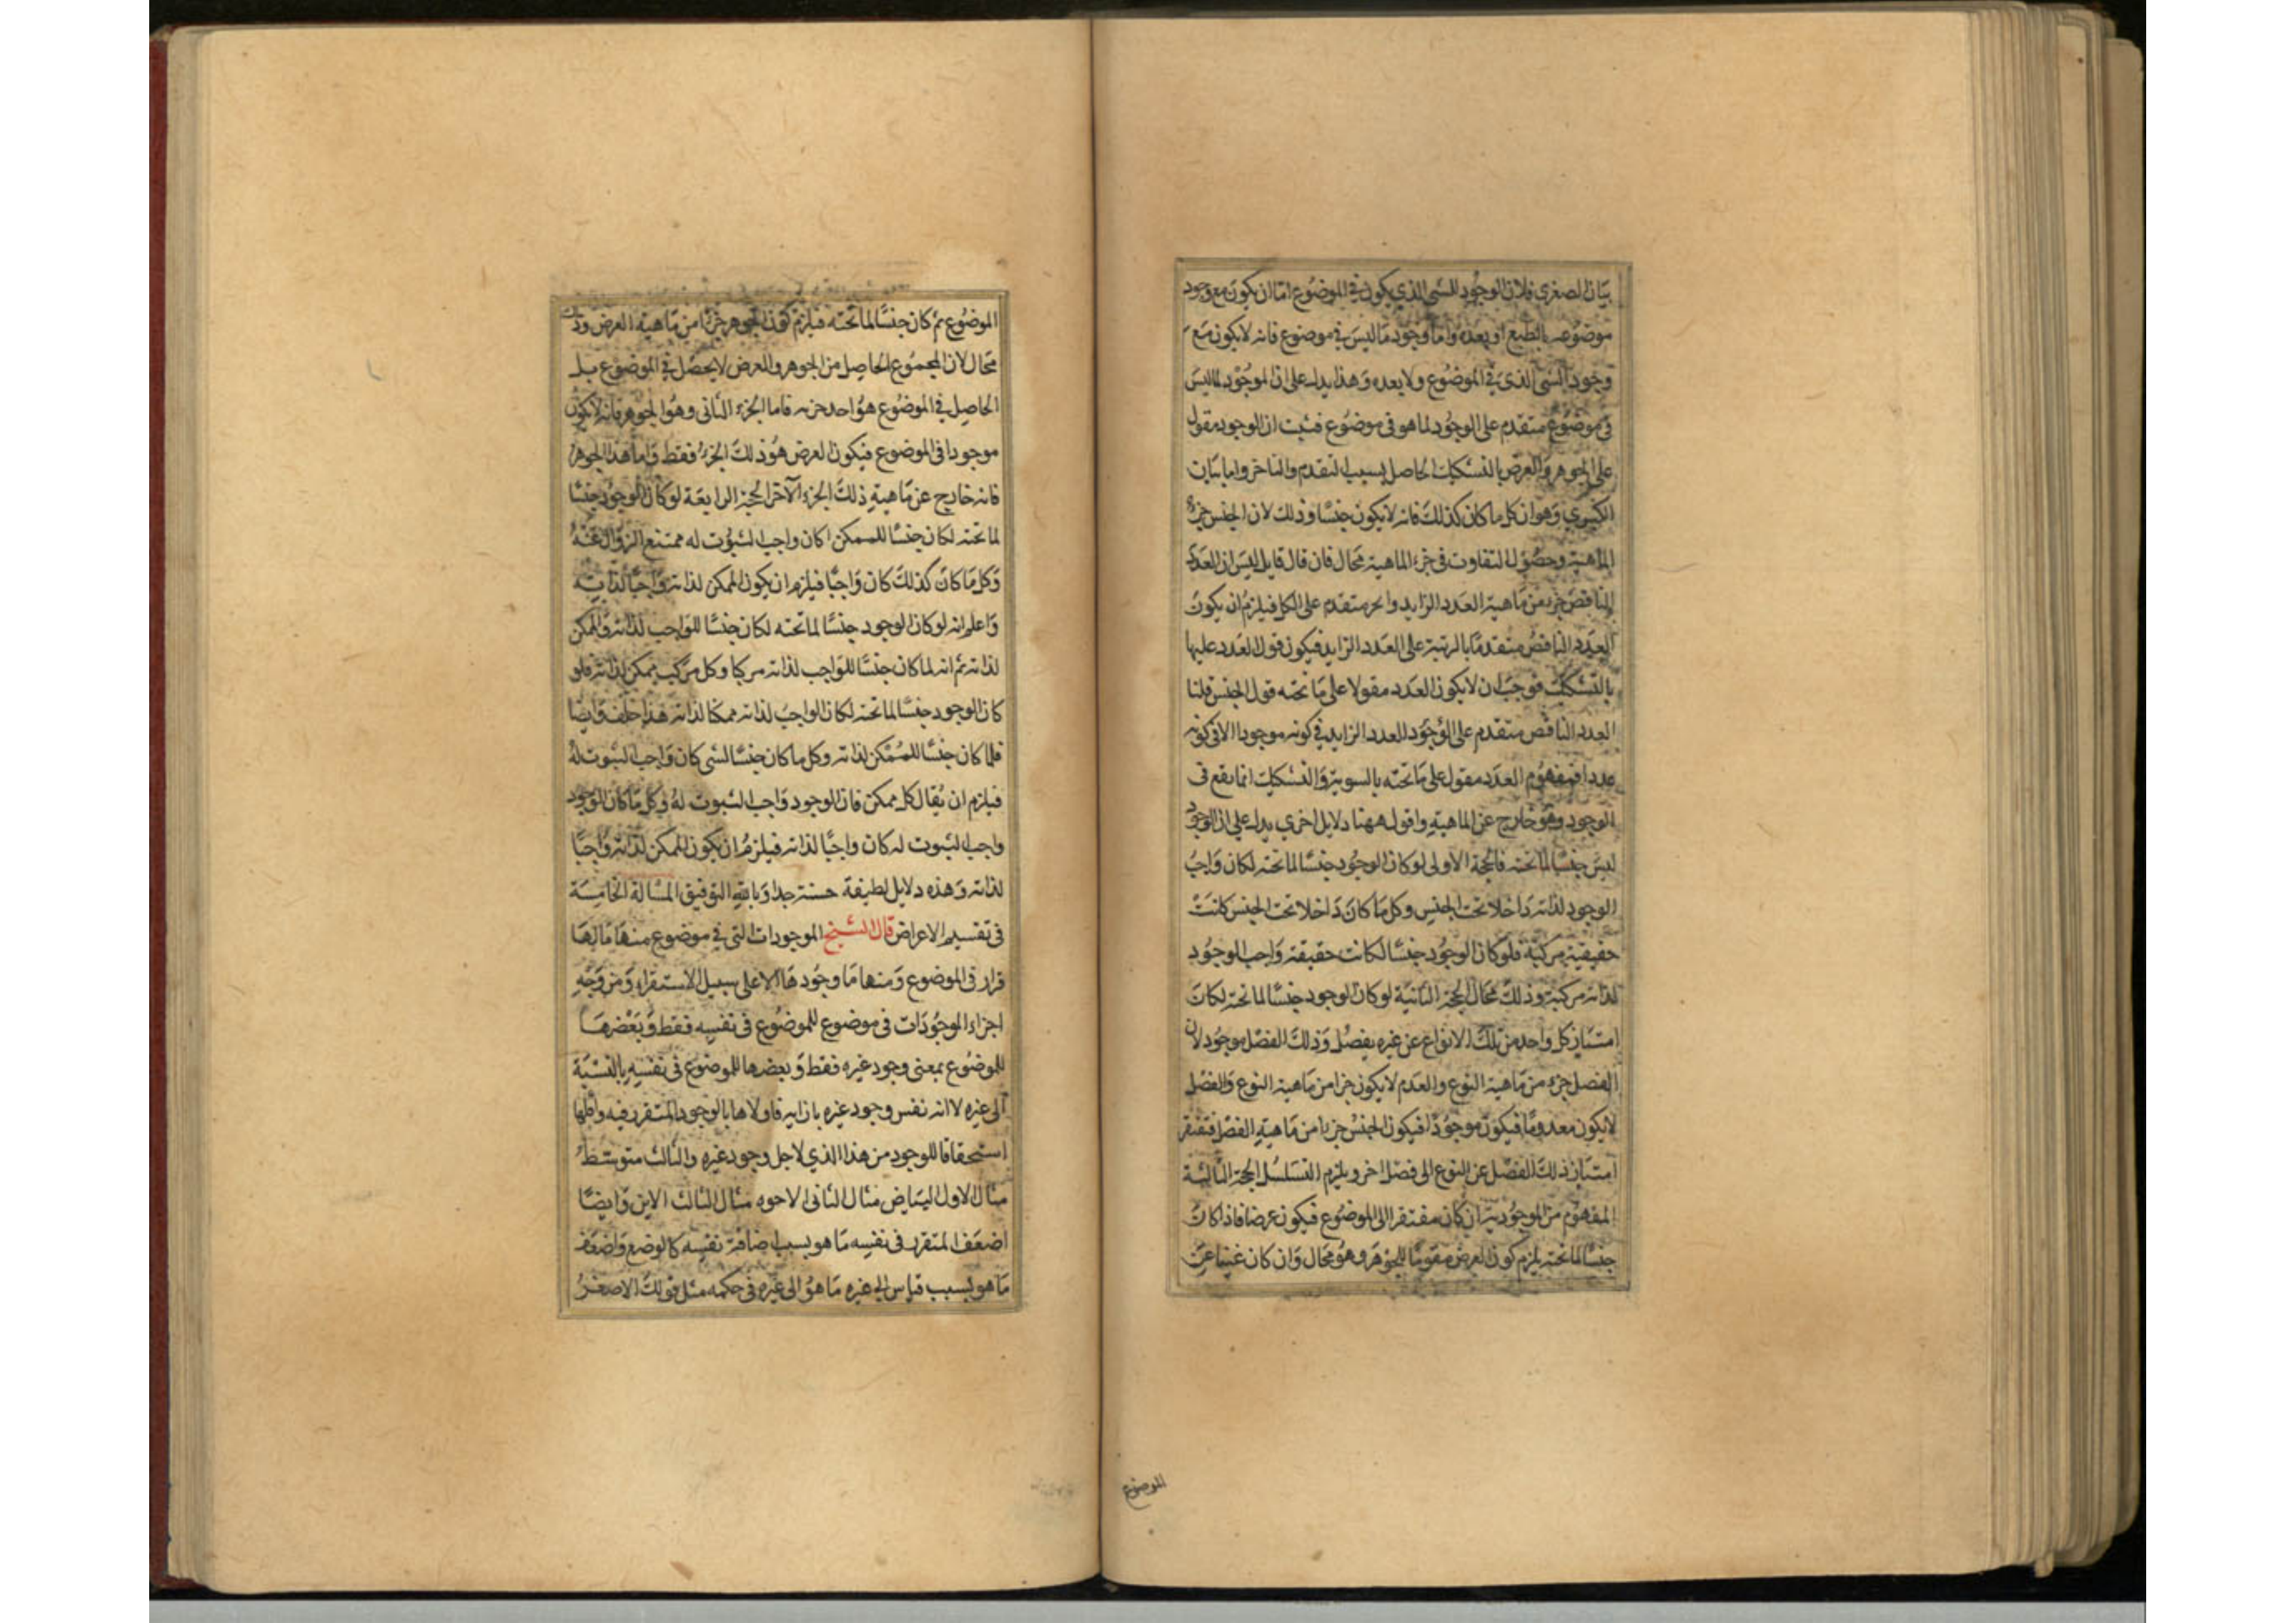 بيان الصغرى فلان الوجود للشي الذي يكون في الموضوع اما ان يكون مع وجود
موضوعه بالطبع او بعده واما وجود ما ليس في موضوع فانه لا يكون مع
وجود الشي الذي في الموضوع ولا بعده وهذا يدل على ان الموجود لما ليس
في موضوع متقدم على الوجود لما هو في موضوع فثبت ان الوجود مقول
على الجوهر والعرض بالتشكيك الحاصل بسبب التقدم والتاخر واما بيان
الكبرى وهو ان كل ما كان كذلك فانه لا يكون جنسا وذلك لان الجنس جزء
الماهية وحصول التفاوت في جزء الماهية محال فان قال قايل اليس ان العدد
الناقص جزء من ماهية العدد الزايد والجزء متقدم على الكل فيلزم ان يكون
العدد الناقص متقدما بالرتبة على العدد الزايد فيكون قول العدد عليها
بالتشكيك فوجب ان لا يكون العدد مقولا على ما تحته قول الجنس قلنا
العدد الناقص متقدم على الوجود للعدد الزايد في كونه موجودا لا في كونه
عددا فمفهوم العدد مقول على ما تحته بالسوية والتشكيك انما يقع في
الوجود وهو خارج عن الماهية واقول ههنا دلايل اخرى يدل على ان الوجود
ليس جنسا لما تحته فالحجة الاولى لو كان الوجود جنسا لما تحته لكان واجب
الوجود لذاته داخلا تحت الجنس وكل ما كان داخلا تحت الجنس كانت
حقيقته مركبة فلو كان الوجود جنسا لكانت حقيقة واجب الوجود
لذاته مركبة وذلك محال الحجة الثانية لو كان الوجود جنسا لما تحته لكان
امتياز كل واحد من تلك الانواع عن غيره بفصل وذلك الفصل موجود لان
الفصل جزء من ماهية النوع والعدم لا يكون جزا من ماهية النوع والفصل
لا يكون معدوما فيكون موجودا فيكون الجنس جزءا من ماهية الفصل فتفتقر
امتياز ذلك الفصل عن النوع الى فصل اخر ويلزم التسلسل الحجة الثالثة
المفهوم من الموجودية ان كان مفتقرا الى الموضوع فيكون عرضا فاذا كان
جنسا لما تحته يلزم كون العرض مقوما للجوهر وهو محال وان كان غنيا عن
الموضوع
الموضوع ثم كان جنسا لما تحته فيلزم كون الجوهر جزءا من ماهية العرض وذلك
محال لان المجموع الحاصل من الجوهر والعرض لا يحصل في الموضوع بل
الحاصل في الموضوع هو احد جزيه فاما الجزء الثاني وهو الجوهر فانه لا يكون
موجودا في الموضوع فيكون العرض هو ذلك الجزء فقط واما هذا الجوهر
فانه خارج عن ماهية ذلك الجزء الآخر الحجة الرابعة لو كان الوجود جنسا
لما تحته لكان جنسا للممكن اكان واجب الثبوت له ممتنع الزوال عنه
وكل ما كان كذلك كان واجبا فيلزم ان يكون الممكن لذاته واجبا لذاته
واعلم انه لو كان الوجود جنسا لما تحته لكان جنسا للواجب لذاته وللممكن
لذاته ثم انه لما كان جنسا للواجب لذاته مركبا وكل مركب ممكن لذاته فلو
كان الوجود جنسا لما تحته لكان الواجب لذاته ممكنا لذاته هذا خلف وايضا
فلما كان جنسا للممكن لذاته وكل ما كان جنسا لشي كان واجب الثبوت له
فيلزم ان يقال كل ممكن فان الوجود واجب الثبوت له وكل ما كان الوجود
واجب الثبوت له كان واجبا لذاته فيلزم ان يكون الممكن لذاته واجبا
لذاته وهذه دلايل لطيفة حسنة جدا وبالله التوفيق المسالة الخامسة
في تقسيم الاعراض قال الشيخ الموجودات التي في موضوع منها ما لها
قرار في الموضوع ومنها ما وجودها لا على سبيل الاستقرار ومن وجه
اجزاء الموجودات في موضوع للموضوع في نفسه فقط وبعضها
للموضوع بمعنى وجود غيره فقط وبعضها للموضوع في نفسه بالنسبة
الى غيره لا انه نفس وجود غيره بازايه فاولاها بالوجود المتقرر فيه واقلها
استحقاقا للوجود من هذا الذي لاجل وجود غيره والثالث متوسط
مثال الاول البياض مثال الثاني الاخوه مثال الثالث الاين وايضا
اضعف المتقرر في نفسه ما هو بسبب اضافة نفسه كالوضع واضعف
ما هو بسبب قياس الى غيره ما هو الى غيره في حكمه مثل قولك الاصغر